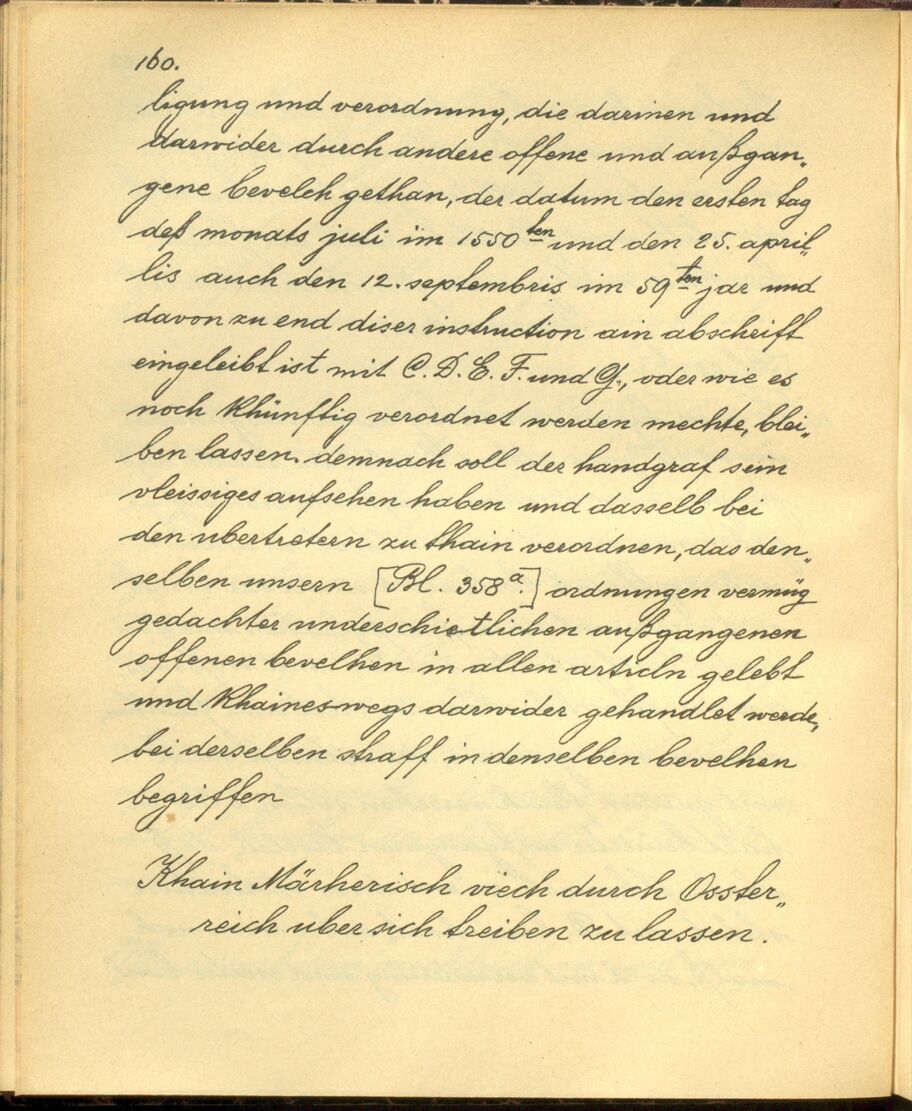 160.
ligung und verordnung, die darinen und
darwider durch andere offene und außgan„
gene bevelch gethan, der datum den ersten tag
deß monats juli im 1550ten und den 25. april„
lis auch den 12. septembris im 59ten jar und
davon zu end diser instruction ain abschrift
eingeleibt ist mit C. D. E. F. und G., oder wie es
noch khünftig verordnet werden mechte, blei„
ben lassen. demnach soll der handgraf sein
vleissiges aufsehen haben und dasselb bei
den ubertretern zu thain verordnen, das den„
selben unsern [Bl. 358a.] ordnungen vermüg
gedachter underschietlichen außgangenen
offenen bevelhen in allen articln gelebt
und khaines-wegs darwider gehandlet werde,
bei derselben straff in denselben bevelhen
begriffen
Khain Märherisch viech durch Osster„
reich uber sich treiben zu lassen.